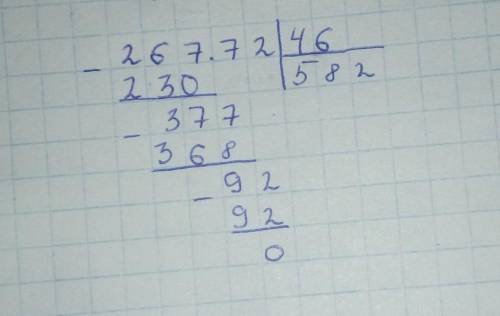 - 267.72 | 46
230 | 582
- 377
368
- 92
92
0